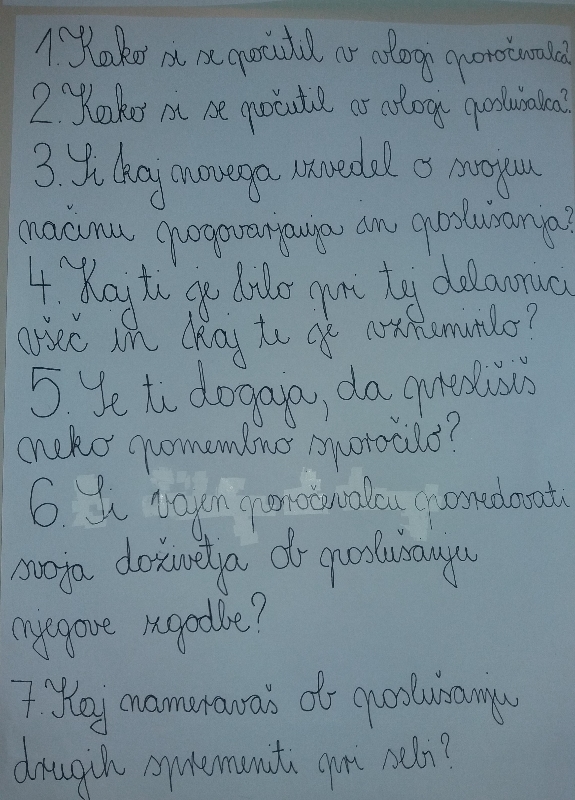 1. Kako si se počutil v vlogi poročevalca?
2. Kako si se počutil v vlogi poslušalca?
3. Si kaj novega izvedel o svojem
načinu pogovarjanja in poslušanja?
4. Kaj ti je bilo pri tej delavnici
všeč in kaj te je vznemirilo?
5. Se ti dogaja, da preslišiš
neko pomembno sporočilo?
6. Si vajen poročevalcu posredovati
svoja doživetja ob poslušanju
njegove zgodbe?
7. Kaj nameravaš ob poslušanju
drugih spremeniti pri sebi?